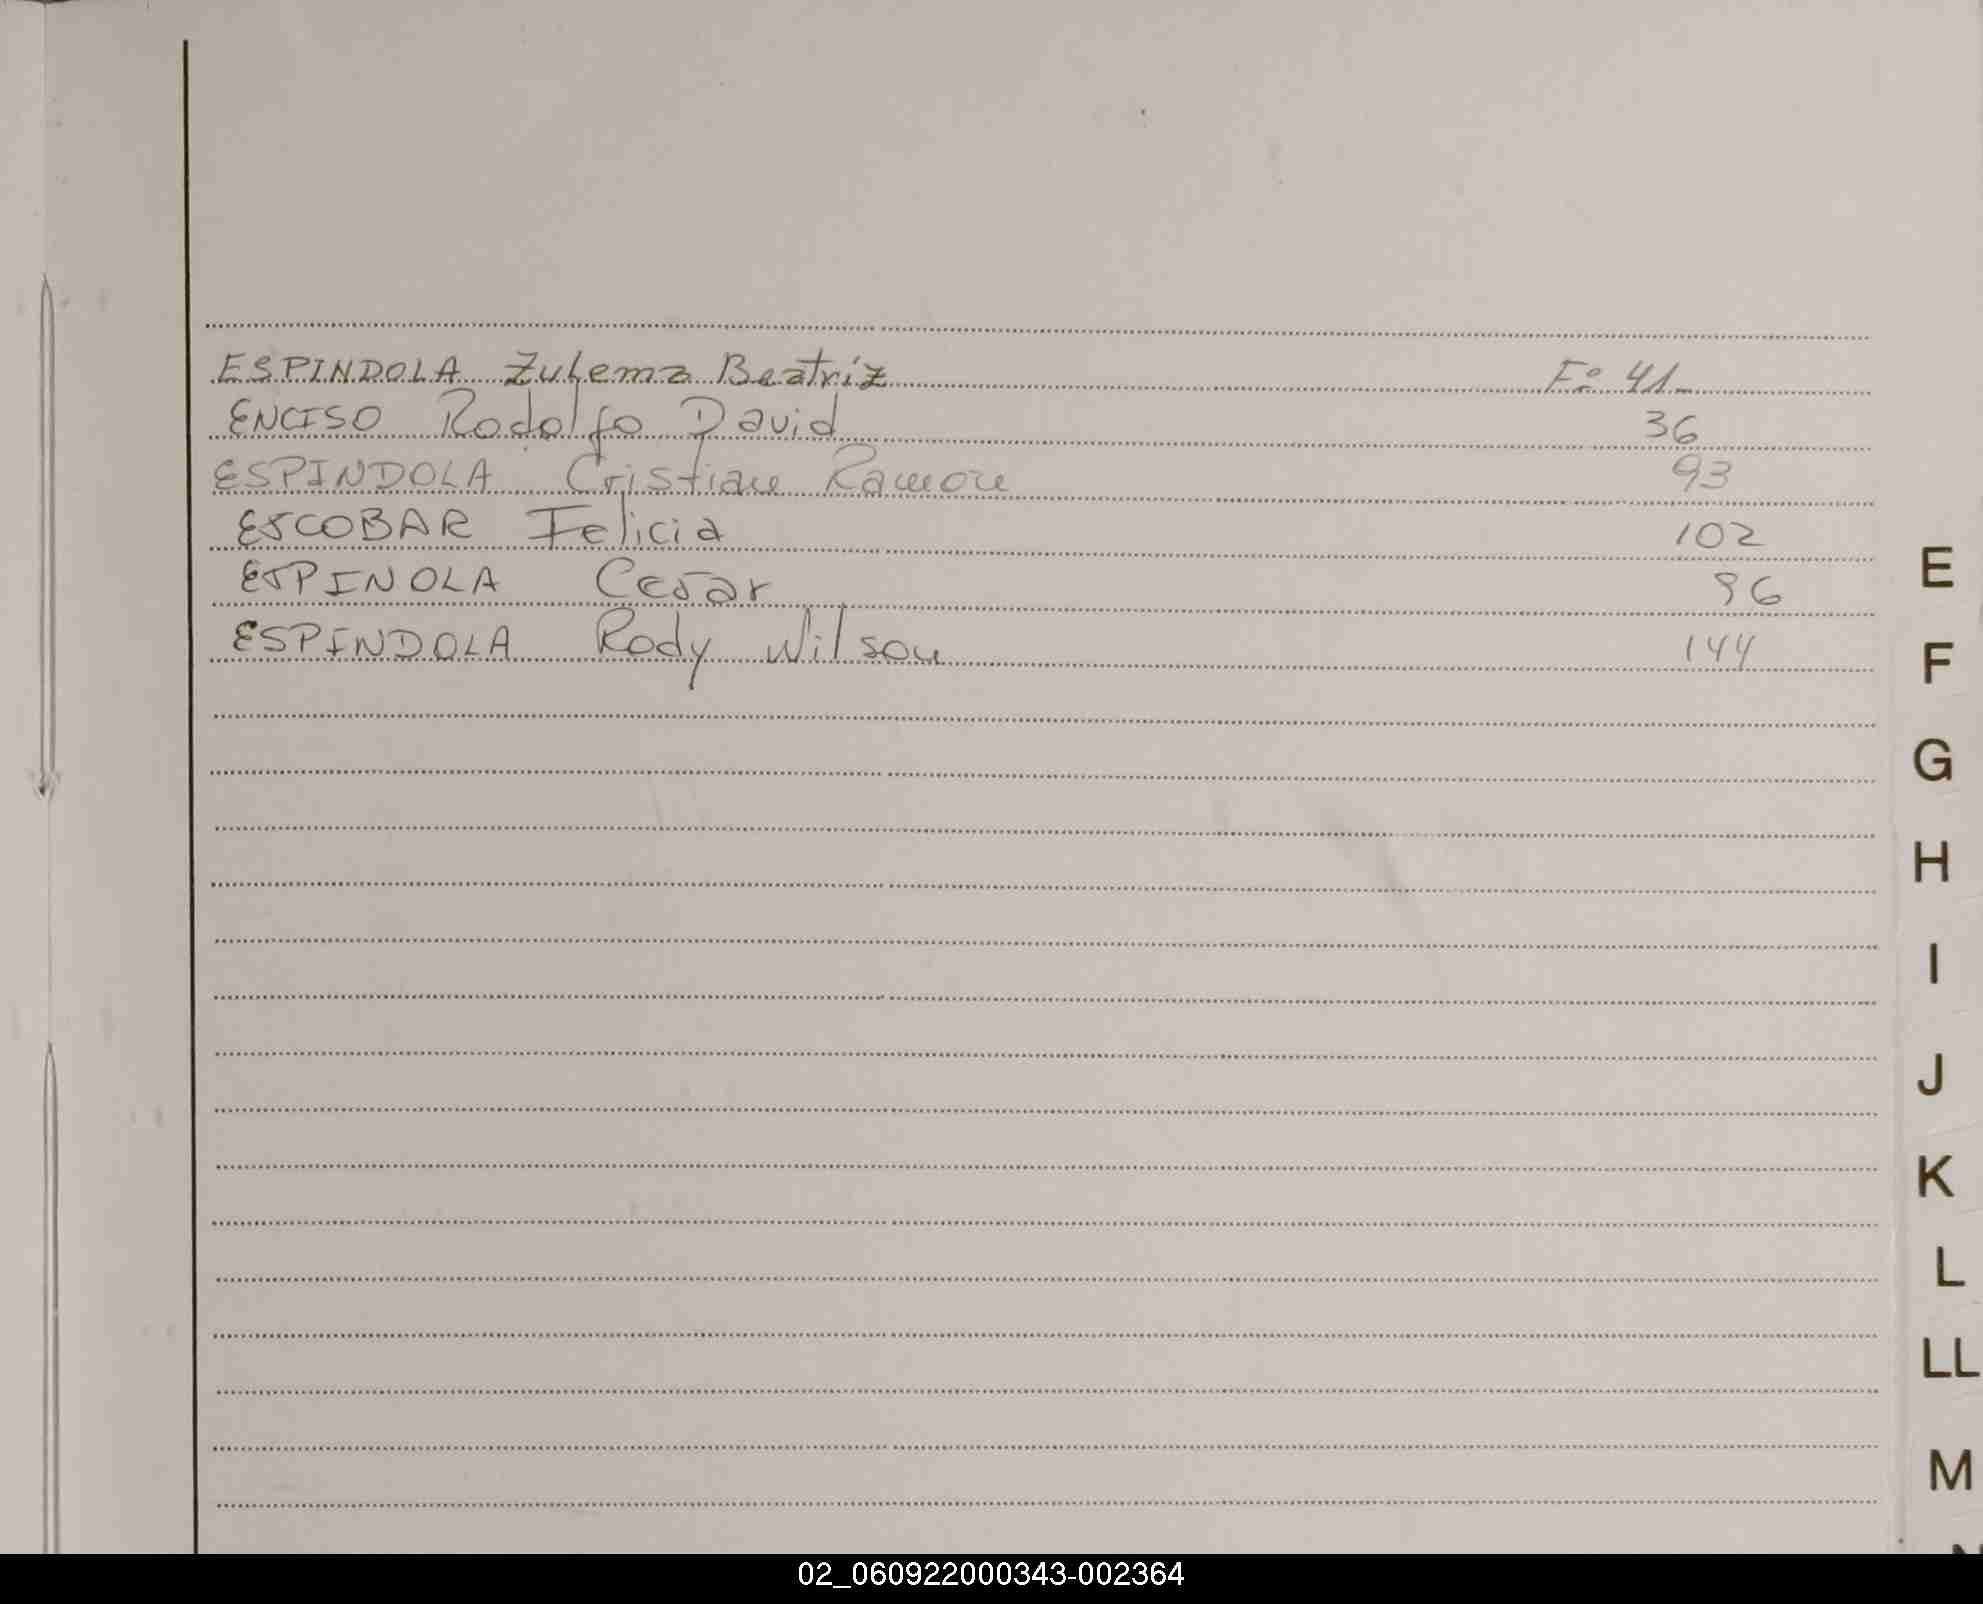 ESPINDOLA Zulema Beatriz Fº 41
ENCISO Rodolfo David 36
ESPINDOLA Cristian Ramon 93
ESCOBAR Felicia 102
ESPINOLA Cesar 96
ESPINDOLA Rody Wilson 144
E
F
G
H
I
J
K
L
LL
M
02_060922000343-002364